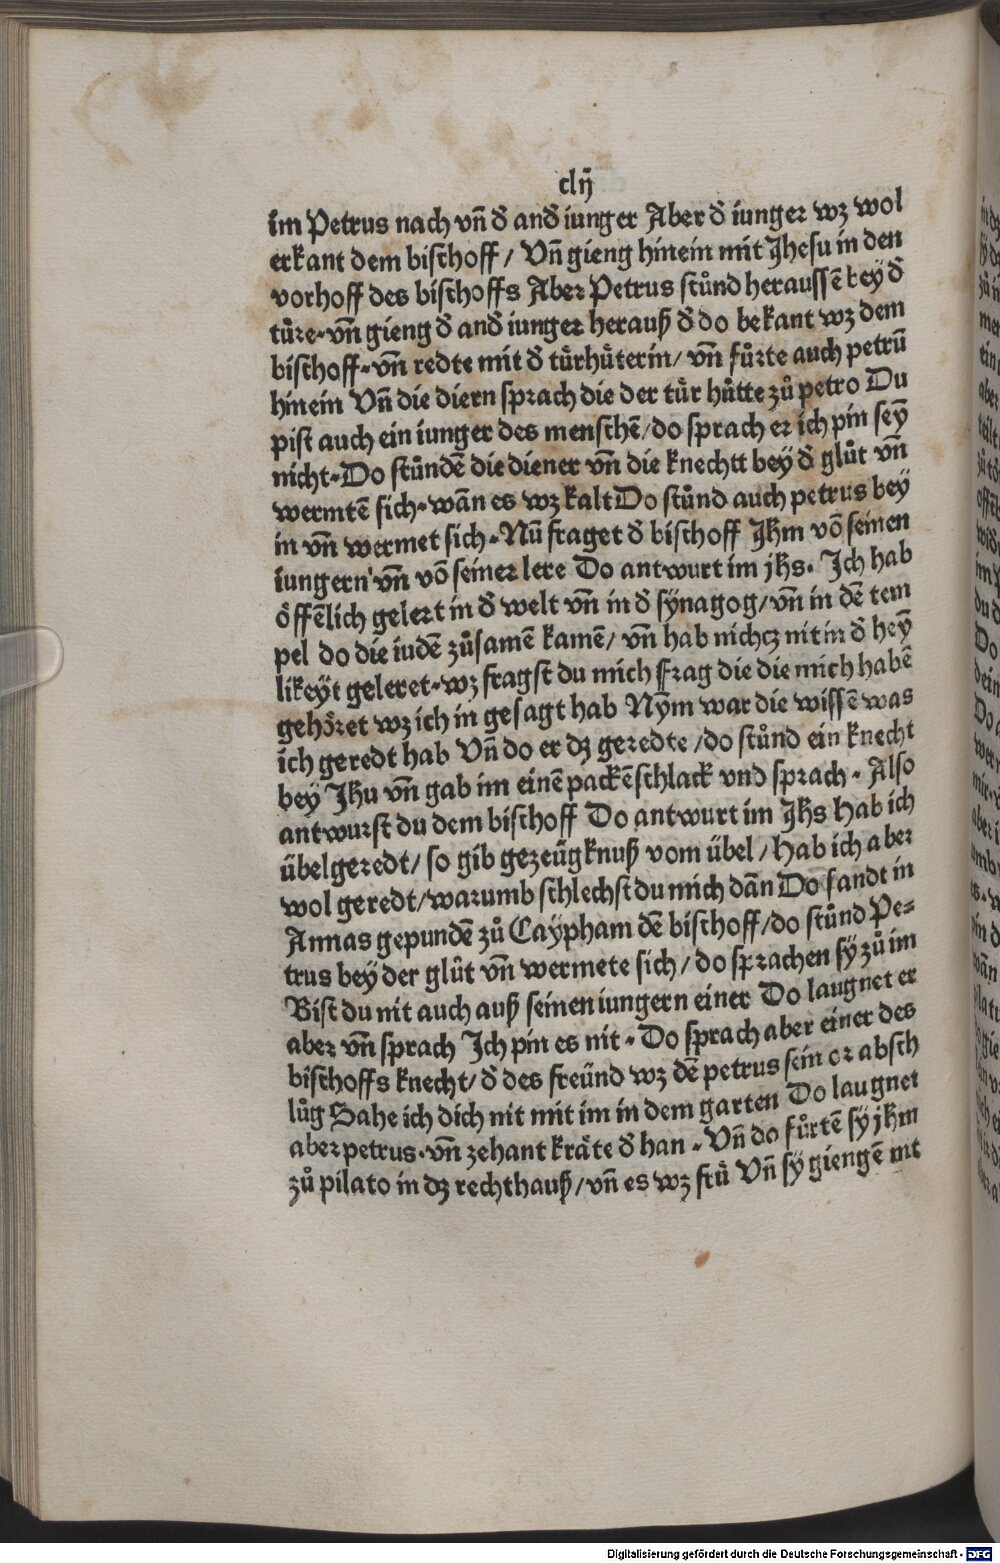 clij
im Petrus nach vn̄ đ and̄ iunger Aber đ iunger wz wol
erkant dem bischoff / Vn̄ gieng hinein mit Jhesu in den
vorhoff des bischoffs Aber Petrus stůnd heraussē bey đ
tůre. vn̄ gieng đ and̄ iunger herauß đ do bekant wz dem
bischoff. vn̄ redte mit đ tůrhůterin / vn̄ fůrte auch petrū
hinein Vn̄ die diern sprach die der tůr hůtte zů petro Du
pist auch ein iunger des menschē / do sprach er ich pin seȳ
nicht. Do stůndē die diener vn̄ die knechtt bey đ glůt vn̄
wermtē sich. wān es wz kalt Do stůnd auch petrus bey
in vn̄ wermet sich. Nū fraget đ bischoff Jhm vō seinen
iungern vn̄ vō seiner lere Do antwurt im jhs. Ich hab
öffēlich gelert in đ welt vn̄ in đ sÿnagog / vn̄ in dē tem
pel do die iudē zůsamē kamē / vn̄ hab nichcz nit in đ heȳ
likeÿt geleret. wz fragst du mich Frag die die mich habē
gehöret wz ich in gesagt hab Nȳm war die wissē was
ich geredt hab Vn̄ do er dz geredte / do stůnd ein knecht
bey Jhu vn̄ gab im einē packēschlack vnd sprach. Also
antwurst du dem bischoff Do antwurt im Jhs Hab ich
übelgeredt / so gib gezeügknuß vom übel / Hab ich aber
wol geredt / warumb schlechst du mich dān Do sandt in
Annas gepundē zů Caÿpham dē bischoff / do stůnd Pe=
trus beÿ der glůt vn̄ wermete sich / do sprachen sÿ zů im
Bist du nit auch auß seinen iungern einer Do laugnet er
aber vn̄ sprach Ich pin es nit. Do sprach aber einer des
bischoffs knecht / đ des freünd wz dē petrus sein or absch
lůg Sahe ich dich nit mit im in dem garten Do laugnet
aber petrus. vn̄ zehant kräte đ han. Vn̄ do fůrtē sÿ jhm
zů pilato in dz rechthauß / vn̄ es wz frů Vn̄ sÿ giengē nit
Digitalisierung gefördert durch die Deutsche Forschungsgemeinschaft - DFG